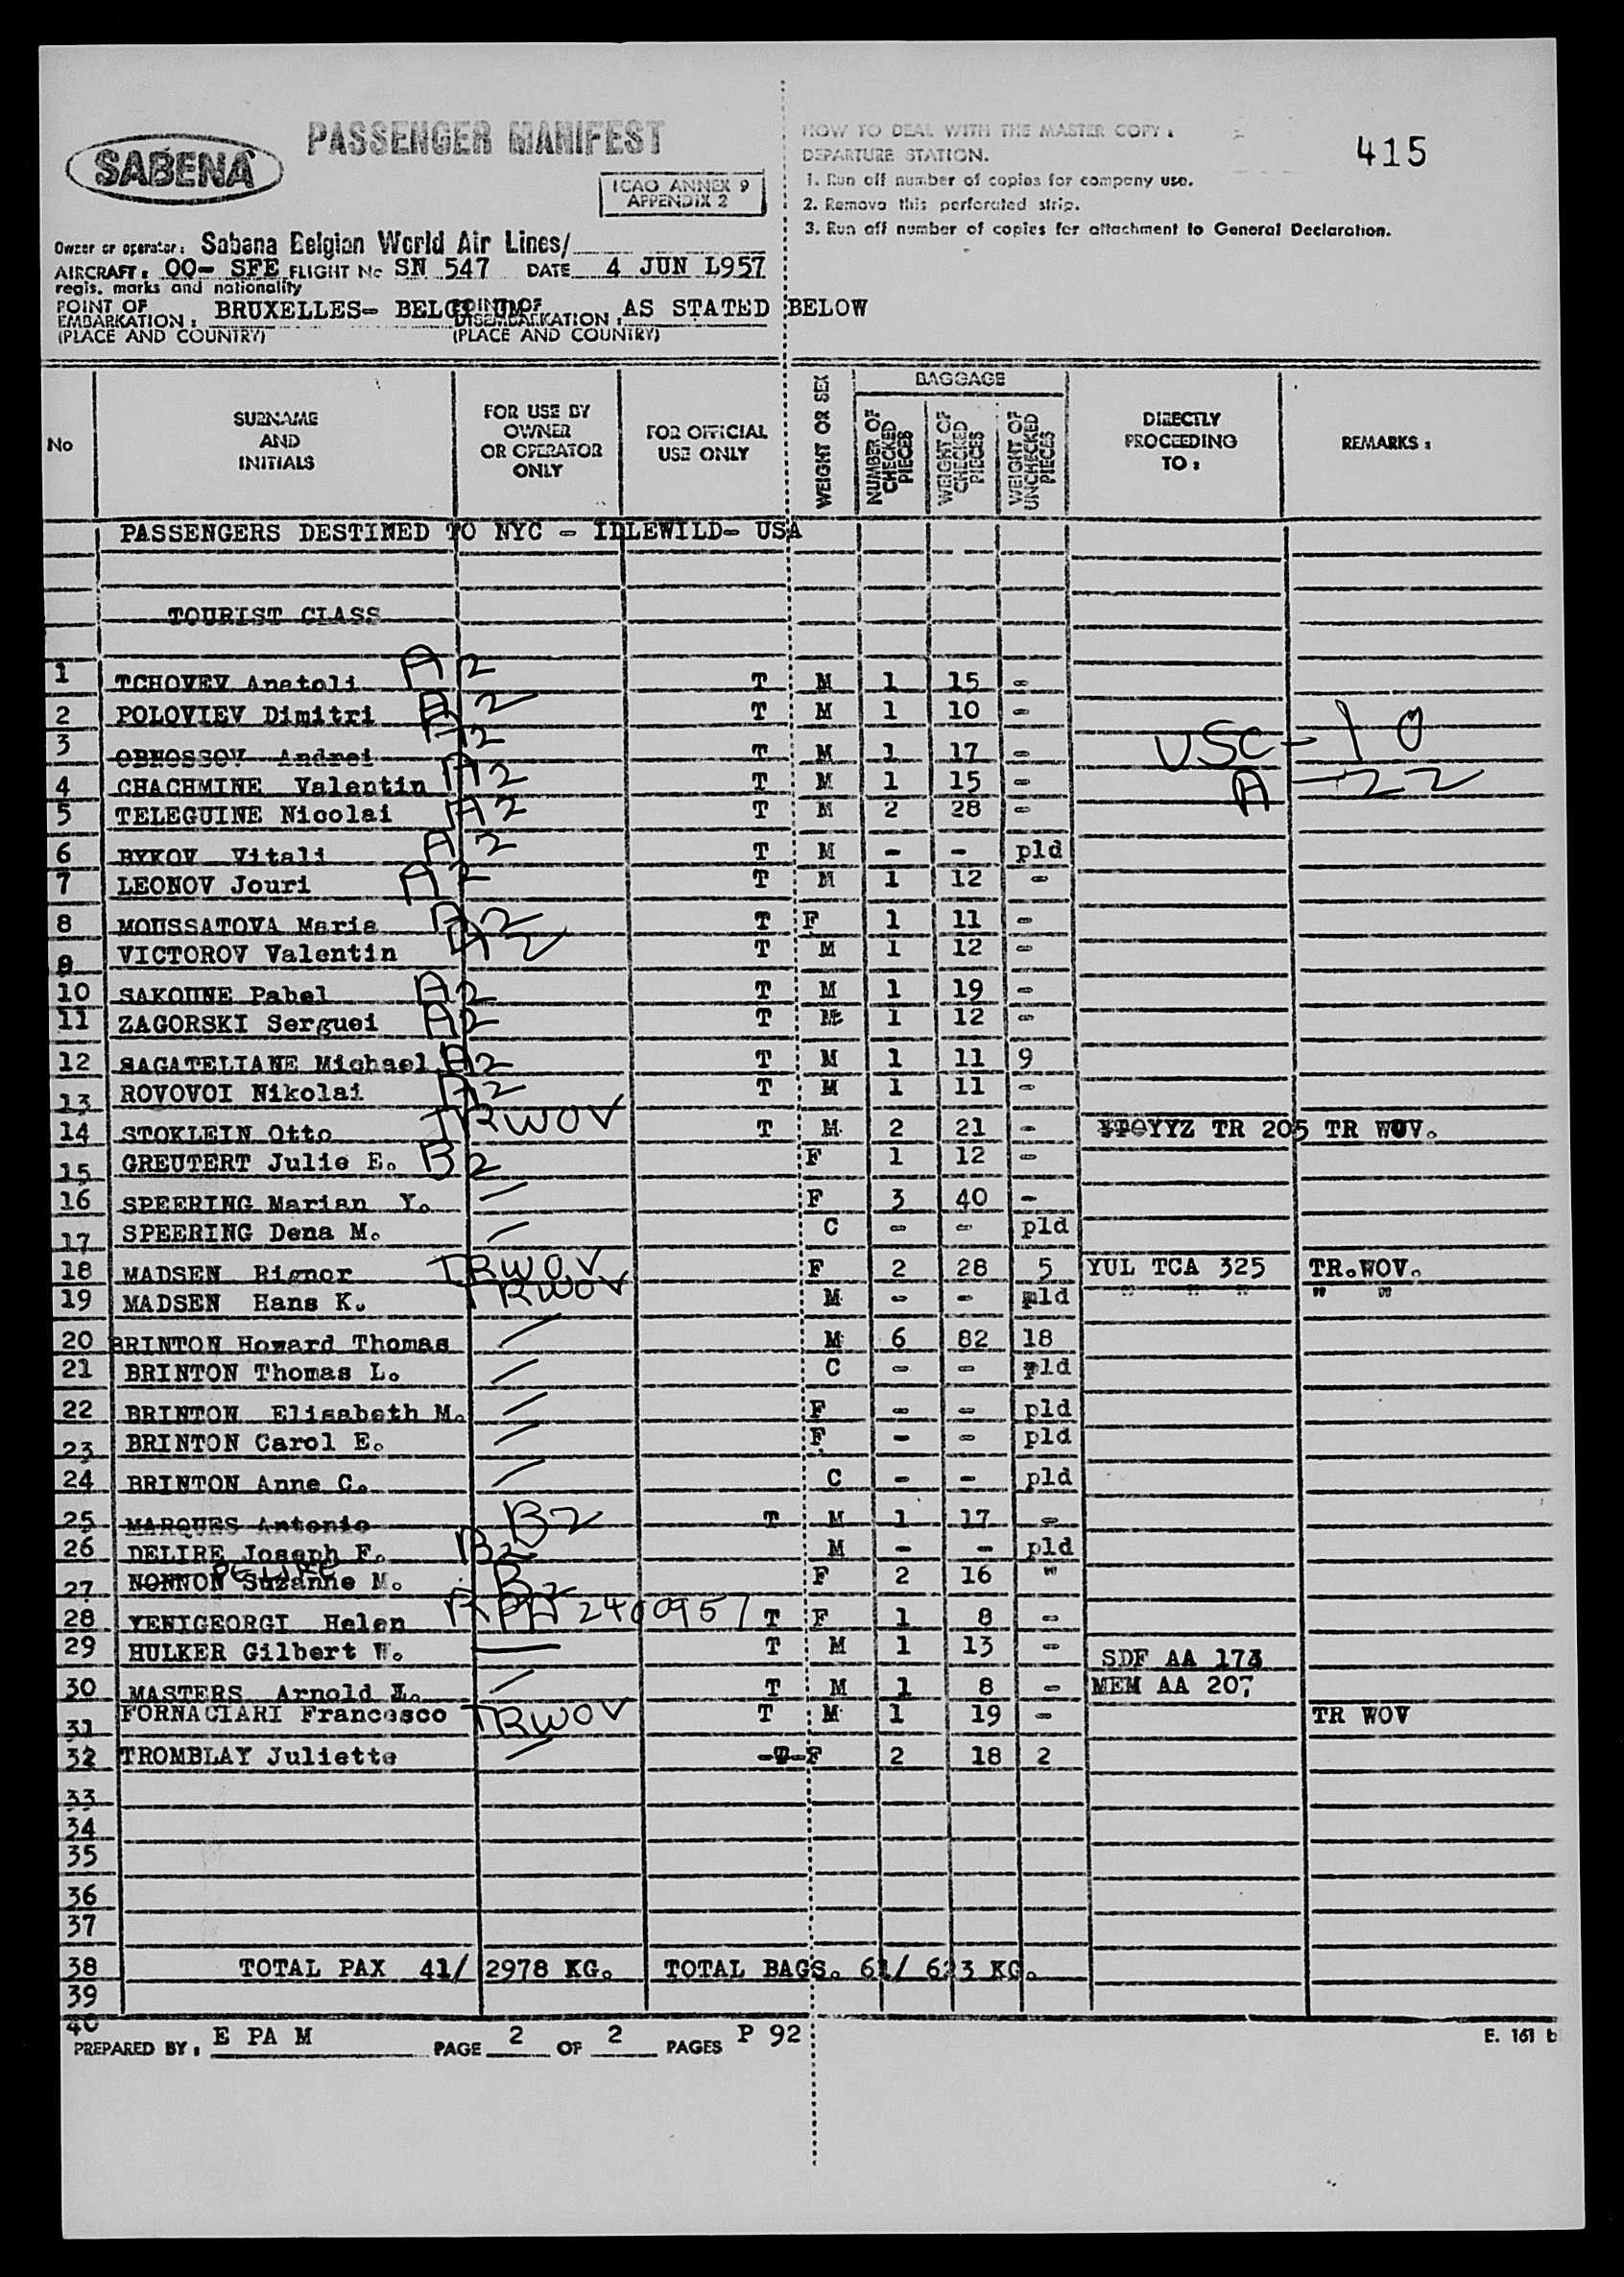 415
PASSENGER MANIFEST
SABENA
ICAO ANNEX 9
APPENDIX 2
HOW TO DEAL WITH THE MASTER COPY :
DEPARTURE STATION.
1. Run off number of copies for company use.
2. Remove this perforated strip.
3. Run off number of copies for attachment to General Declaration.
Owner or operator: Sabena Belgian World Air Lines/
AIRCRAFT: OO- SFE FLIGHT No SN 547 DATE 4 JUN L957
regis. marks and nationality
POINT OF EMBARKATION : BRUXELLES- BELGIUM POINT OF DISEMBARKATION : AS STATED BELOW
(PLACE AND COUNTRY) (PLACE AND COUNTRY)
No SURNAME AND INITIALS FOR USE BY OWNER OR OPERATOR ONLY FOR OFFICIAL USE ONLY WEIGHT OR SEX BAGGAGE NUMBER OF CHECKED PIECES WEIGHT OF CHECKED PIECES WEIGHT OF UNCHECKED PIECES DIRECTLY PROCEEDING TO : REMARKS :
PASSENGERS DESTINED TO NYC - IDLEWILD- USA
TOURIST CLASS
1 TCHOVEV Anatoli A2 T M 1 15 -
2 POLOVIEV Dimitri A2 T M 1 10 -
3 OBNOSSOV Andrei A2 T M 1 17 - USC - 10
4 CHACHMINE Valentin A2 T M 1 15 - A - 22
5 TELEGUINE Nicolai A2 T M 2 28 -
6 BYKOV Vitali A2 T M - - pld
7 LEONOV Jouri A2 T M 1 12 -
8 MOUSSATOVA Maria A2 T F 1 11 -
9 VICTOROV Valentin A2 T M 1 12 -
10 SAKOUNE Pabel A2 T M 1 19 -
11 ZAGORSKI Serguei A2 T M 1 12 -
12 SAGATELIANE Michael A2 T M 1 11 9
13 ROVOVOI Nikolai A2 T M 1 11 -
14 STOKLEIN Otto TRWOV T M 2 21 - YYZ TR 205 TR WOV.
15 GREUTERT Julie E. B2 F 1 12 -
16 SPEERING Marian Y. F 3 40 -
17 SPEERING Dena M. C - - pld
18 MADSEN Rigmor TRWOV F 2 28 5 YUL TCA 325 TR.WOV.
19 MADSEN Hans K. TRWOV M - - pld " " " " "
20 BRINTON Howard Thomas M 6 82 18
21 BRINTON Thomas L. C - - pld
22 BRINTON Elisabeth M. F - - pld
23 BRINTON Carol E. F - - pld
24 BRINTON Anne C. C - - pld
25 MARQUES Antonio B2 T M 1 17 -
26 DELIRE Joseph F. B2 M - - pld
DELIRE
27 NONNON Suzanne M. B2 F 2 16 "
28 YENIGEORGI Helen 2400957 T F 1 8 -
29 HULKER Gilbert W. T M 1 13 - SDF AA 173
30 MASTERS Arnold L. T M 1 8 - MEM AA 207
31 FORNACIARI Francesco TRWOV T M 1 19 - TR WOV
32 TROMBLAY Juliette -T-F 2 18 2
33
34
35
36
37
38 TOTAL PAX 41/ 2978 KG. TOTAL BAGS. 61/ 623 KG.
39
40
PREPARED BY : E PA M PAGE 2 OF 2 PAGES P 92 E. 161 b